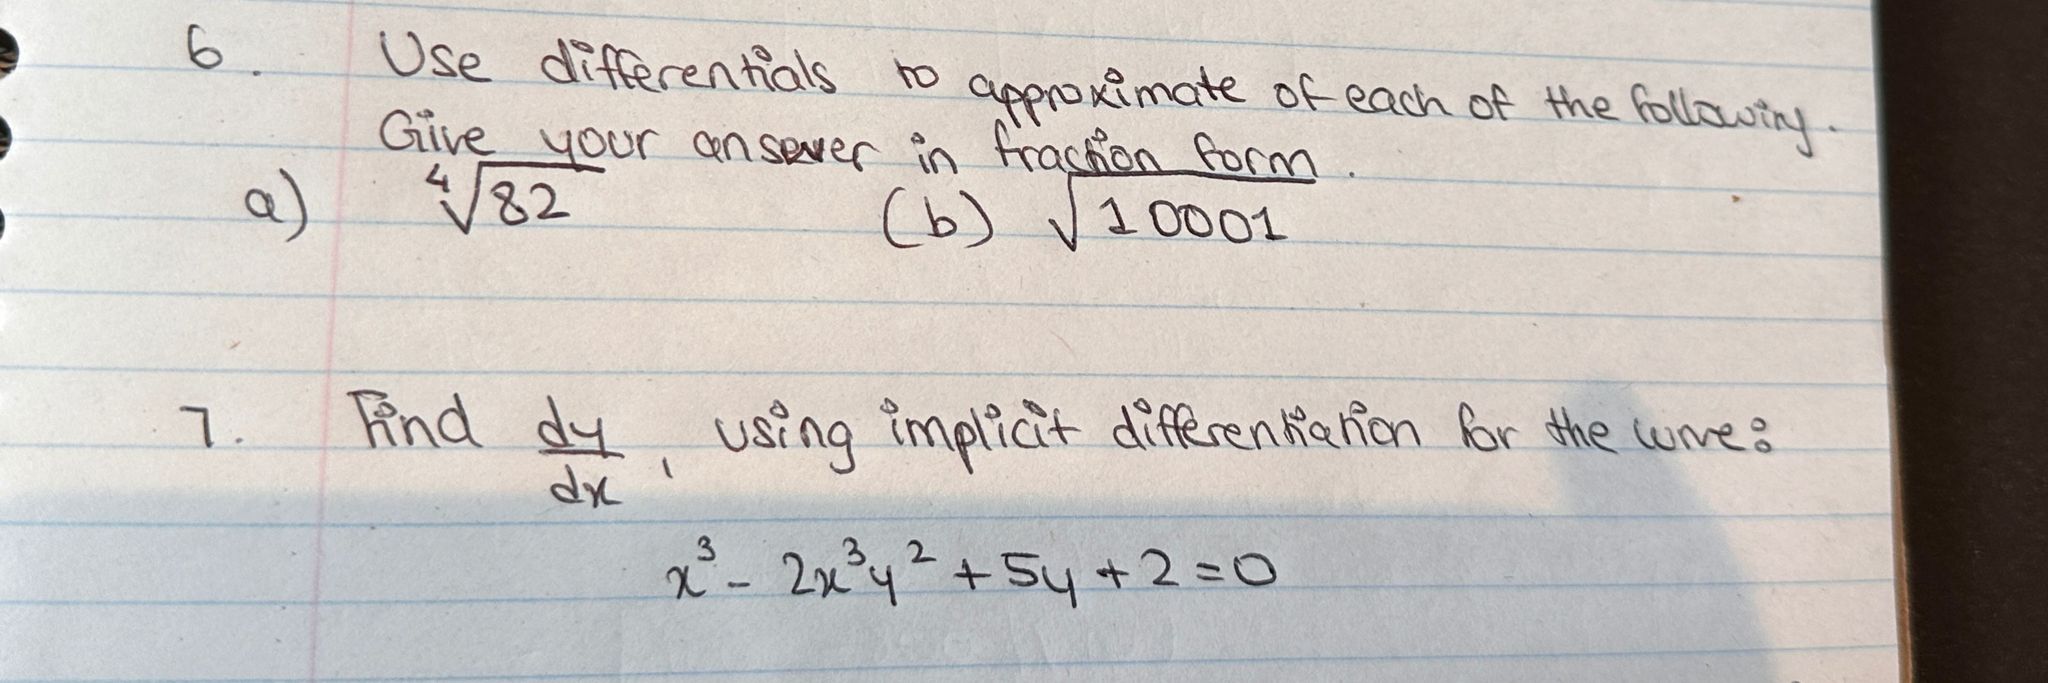 6. Use differentials to approximate of each of the following.
Give your answer in fraction form.
a) ⁴√82 (b) √10001
7. Find dy/dx, using implicit differentiation for the curve:
x³ - 2x³y² + 5y + 2 = 0